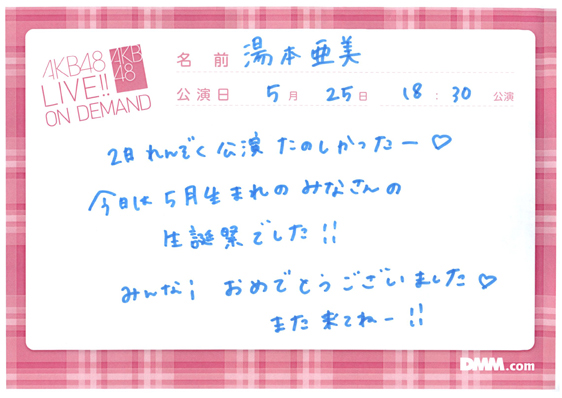 AKB48
LIVE!!
ON DEMAND
AKB
48
名前 湯本亜美
公演日 5月 25日 18:30 公演
2日れんぞく公演たのしかったー♡
今日は5月生まれのみなさんの
生誕祭でした!!
みんな! おめでとうございました♡
また来てねー!!
DMM.com